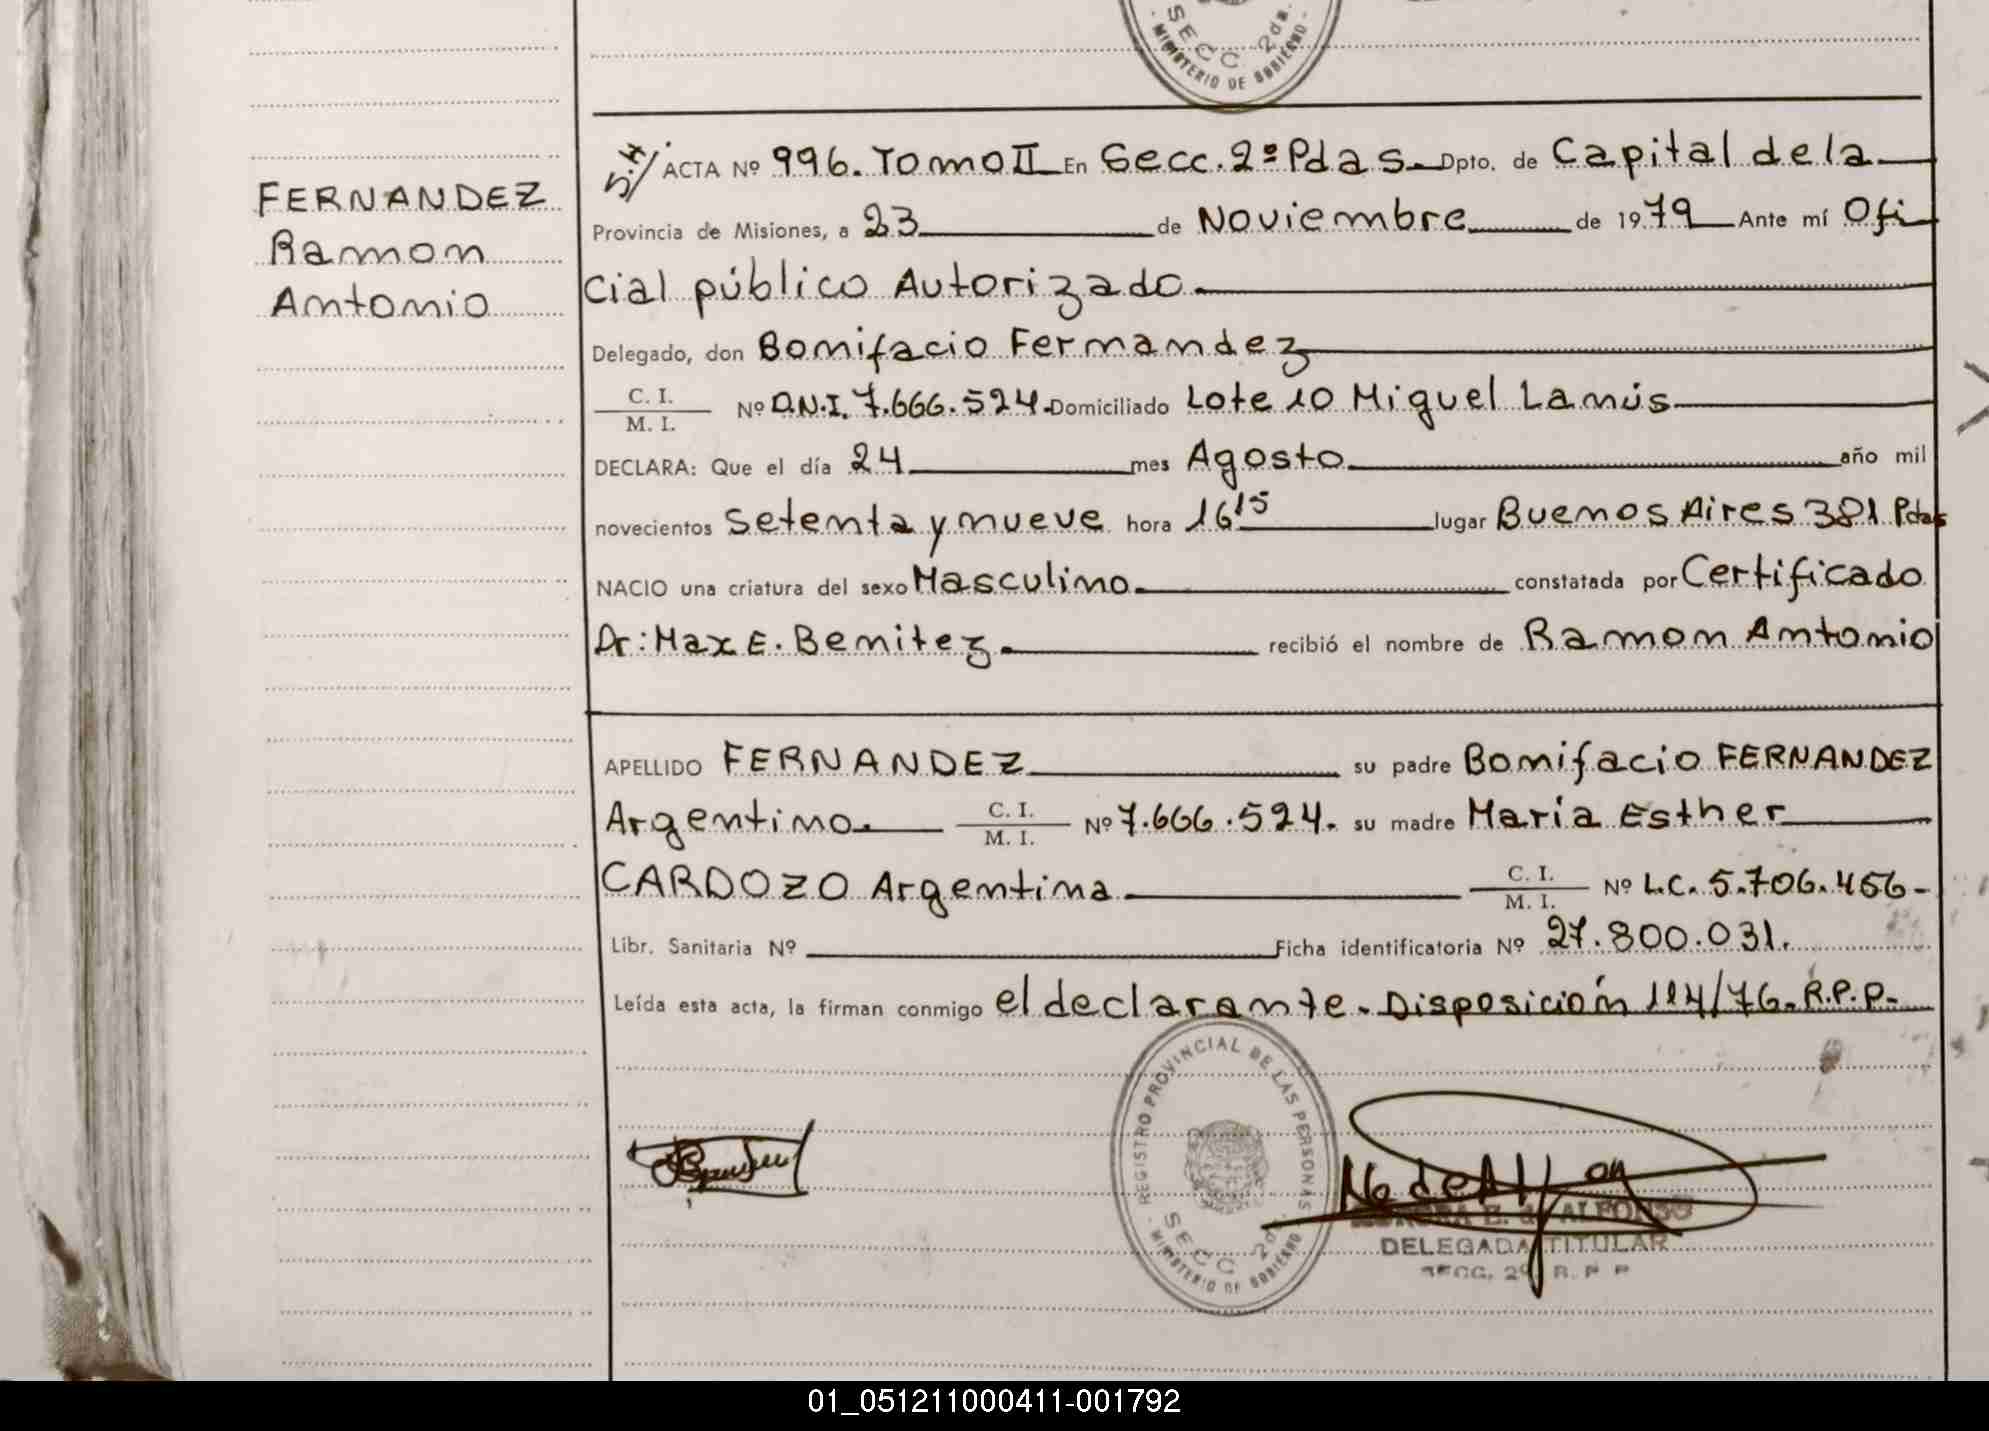 SECC 2da.
MINISTERIO DE GOBIERNO
FERNANDEZ
Ramon
Antonio
ACTA Nº 996. Tomo II En Secc. 2ª Pdas. Dpto. de Capital de la
Provincia de Misiones, a 23 de Noviembre de 1979 Ante mí Ofi
cial público Autorizado.
Delegado, don Bonifacio Fernandez
C. I.
M. I. Nº D.N.I. 7.666.524. Domiciliado Lote 10 Miguel Lanús
DECLARA: Que el día 24 mes Agosto año mil
novecientos setenta y nueve hora 16 15 lugar Buenos Aires 381 Pdas
NACIO una criatura del sexo Masculino. constatada por Certificado
Dr: Max E. Benitez. recibió el nombre de Ramon Antonio
APELLIDO FERNANDEZ su padre Bonifacio FERNANDEZ
Argentino. C. I. M. I. Nº 7.666.524. su madre Maria Esther
CARDOZO Argentina C. I. M. I. Nº L.C. 5.706.456-
Libr. Sanitaria Nº Ficha identificatoria Nº 27.800.031.
Leída esta acta, la firman conmigo el declarante. Disposición 114/76. R.P.P.
REGISTRO PROVINCIAL DE LAS PERSONAS
SECC 2da.
MINISTERIO DE GOBIERNO
E. de ALFONSO
DELEGADA TITULAR
SECC. 2da. R. P. P.
01_051211000411-001792